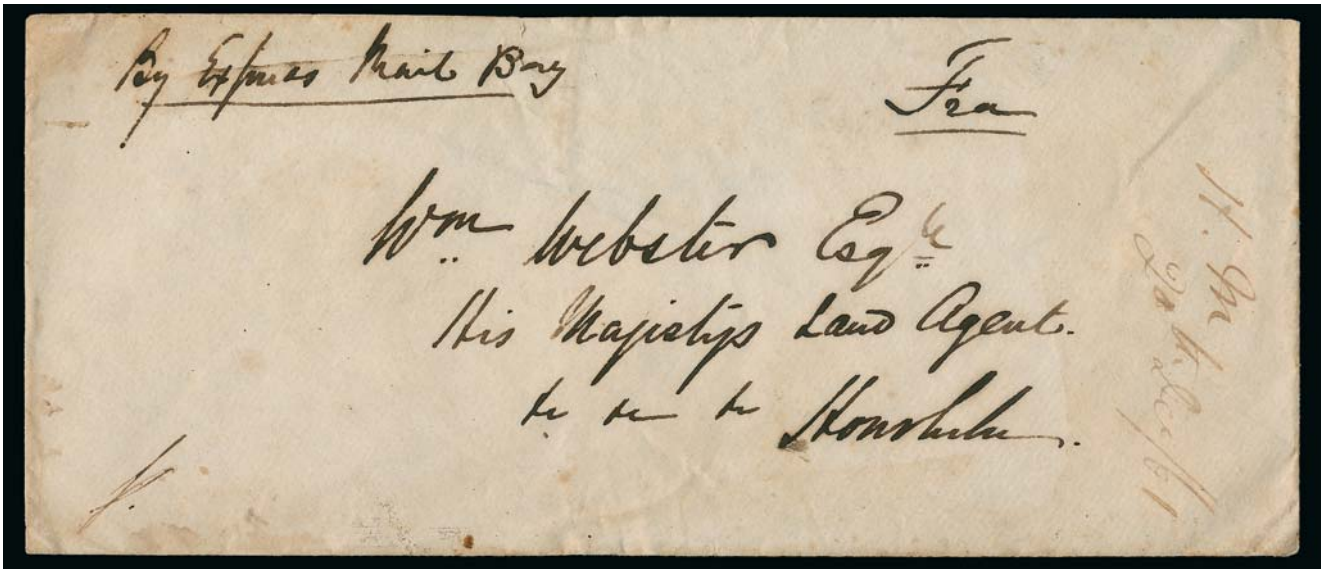 By Express Mail Bag
Fra
Wm Webster Esqre
His Majistys Land Agent.
&c &c &c Honolulu.
Dec/61